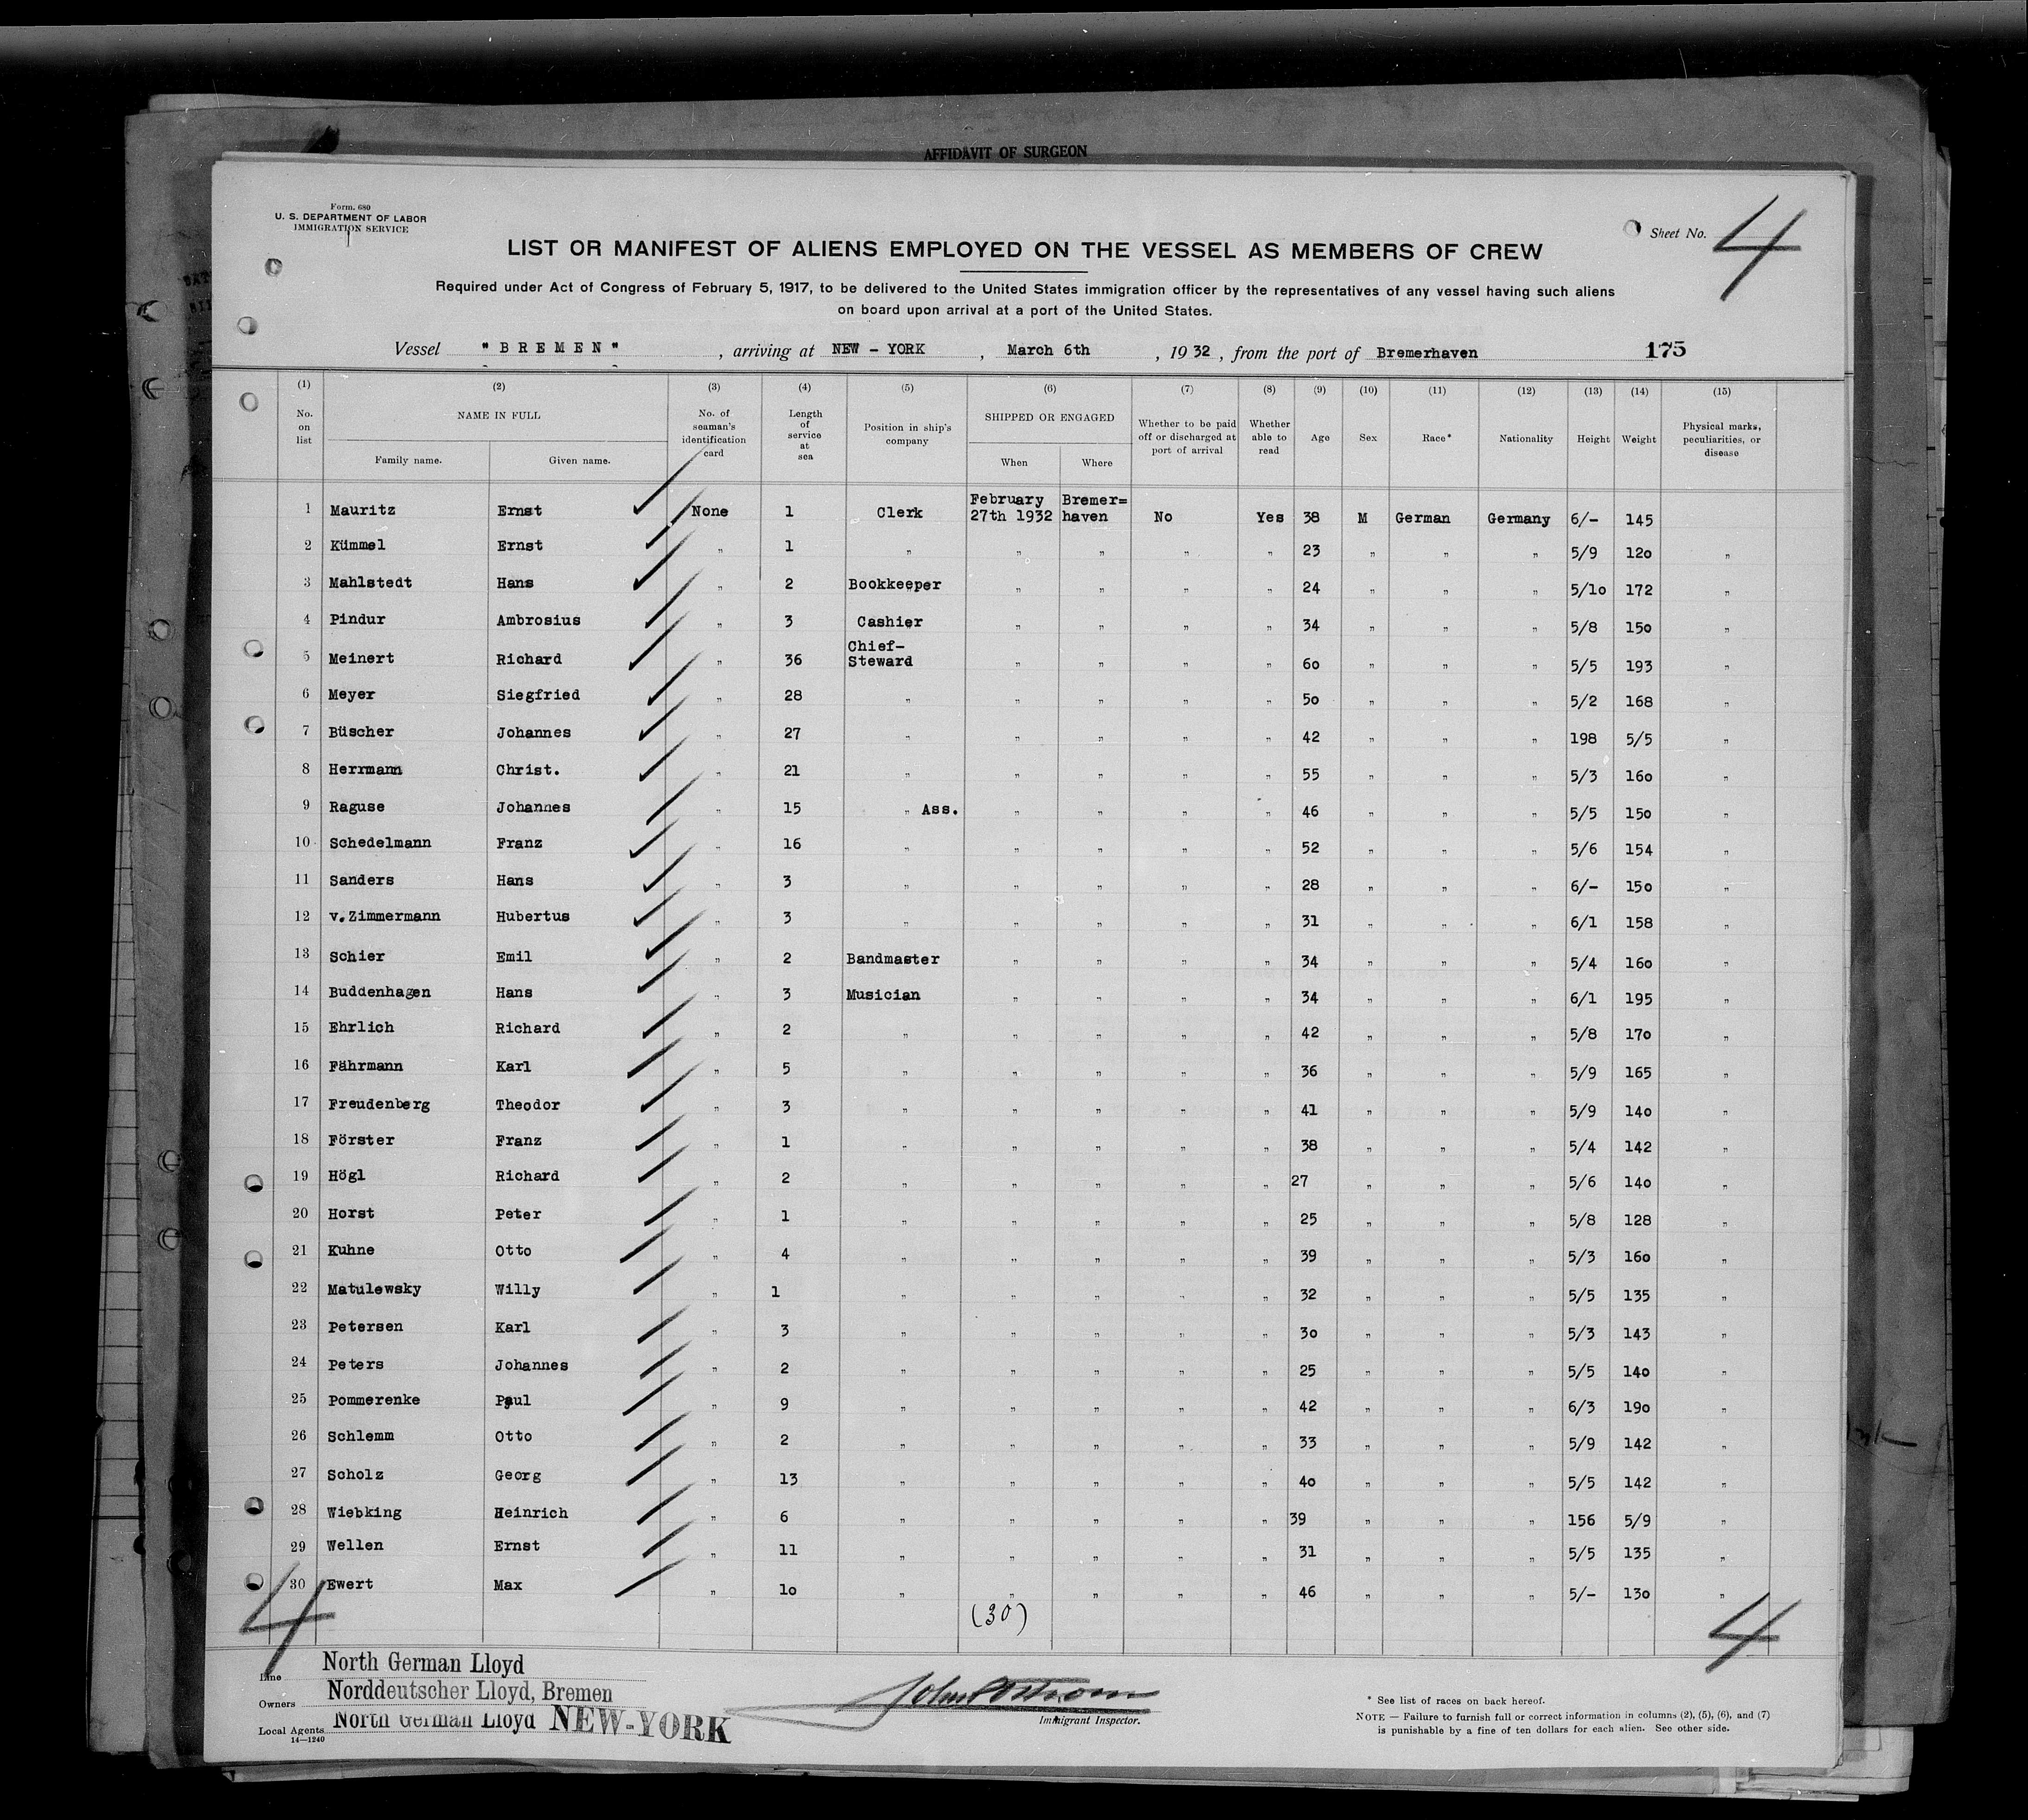 AFFIDAVIT OF SURGEON
Form. 680
U. S. DEPARTMENT OF LABOR
IMMIGRATION SERVICE
Sheet No. 4
LIST OR MANIFEST OF ALIENS EMPLOYED ON THE VESSEL AS MEMBERS OF CREW
Required under Act of Congress of February 5, 1917, to be delivered to the United States immigration officer by the representatives of any vessel having such aliens
on board upon arrival at a port of the United States.
Vessel "BREMEN", arriving at NEW - YORK, March 6th, 1932, from the port of Bremerhaven 175
(1) (2) (3) (4) (5) (6) (7) (8) (9) (10) (11) (12) (13) (14) (15)
No. on list NAME IN FULL Family name. Given name. No. of seaman's identification card Length of service at sea Position in ship's company SHIPPED OR ENGAGED When Where Whether to be paid off or discharged at port of arrival Whether able to read Age Sex Race* Nationality Height Weight Physical marks, peculiarities, or disease
1 Mauritz Ernst None 1 Clerk February 27th 1932 Bremer= haven No Yes 38 M German Germany 6/- 145
2 Kümmel Ernst " 1 " " " " " 23 " " " 5/9 120 "
3 Mahlstedt Hans " 2 Bookkeeper " " " " 24 " " " 5/10 172 "
4 Pindur Ambrosius " 3 Cashier " " " " 34 " " " 5/8 150 "
5 Meinert Richard " 36 Chief- Steward " " " " 60 " " " 5/5 193 "
6 Meyer Siegfried " 28 " " " " " 50 " " " 5/2 168 "
7 Büscher Johannes " 27 " " " " " 42 " " " 198 5/5 "
8 Herrmann Christ. " 21 " " " " " 55 " " " 5/3 160 "
9 Raguse Johannes " 15 " Ass. " " " " 46 " " " 5/5 150 "
10 Schedelmann Franz " 16 " " " " " 52 " " " 5/6 154 "
11 Sanders Hans " 3 " " " " " 28 " " " 6/- 150 "
12 v.Zimmermann Hubertus " 3 " " " " " 31 " " " 6/1 158 "
13 Schier Emil " 2 Bandmaster " " " " 34 " " " 5/4 160 "
14 Buddenhagen Hans " 3 Musician " " " " 34 " " " 6/1 195 "
15 Ehrlich Richard " 2 " " " " " 42 " " " 5/8 170 "
16 Fährmann Karl " 5 " " " " " 36 " " " 5/9 165 "
17 Freudenberg Theodor " 3 " " " " " 41 " " " 5/9 140 "
18 Förster Franz " 1 " " " " " 38 " " " 5/4 142 "
19 Högl Richard " 2 " " " " " 27 " " " 5/6 140 "
20 Horst Peter " 1 " " " " " 25 " " " 5/8 128 "
21 Kuhne Otto " 4 " " " " " 39 " " " 5/3 160 "
22 Matulewsky Willy " 1 " " " " " 32 " " " 5/5 135 "
23 Petersen Karl " 3 " " " " " 30 " " " 5/3 143 "
24 Peters Johannes " 2 " " " " " 25 " " " 5/5 140 "
25 Pommerenke Paul " 9 " " " " " 42 " " " 6/3 190 "
26 Schlemm Otto " 2 " " " " " 33 " " " 5/9 142 "
27 Scholz Georg " 13 " " " " " 40 " " " 5/5 142 "
28 Wiebking Heinrich " 6 " " " " " 39 " " " 156 5/9 "
29 Wellen Ernst " 11 " " " " " 31 " " " 5/5 135 "
30 Ewert Max " 10 " " " " " 46 " " " 5/- 130 "
(30)
4 4
Line North German Lloyd
Owners Norddeutscher Lloyd, Bremen
Local Agents North German Lloyd NEW-YORK
14—1240
Immigrant Inspector.
* See list of races on back hereof.
NOTE — Failure to furnish full or correct information in columns (2), (5), (6), and (7)
is punishable by a fine of ten dollars for each alien. See other side.